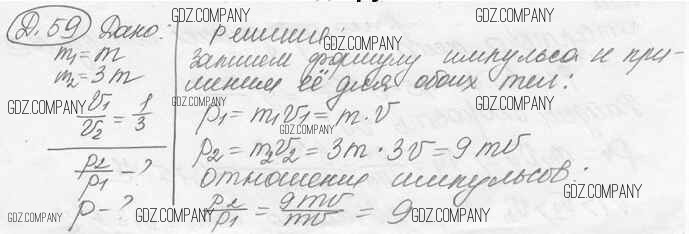 Д.59 Дано: Решение:
m₁ = m
m₂ = 3m
v₁/v₂ = 1/3
p₂/p₁ - ?
p - ?
запишем формулу импульса и при-
меним её для обоих тел:
p₁ = m₁v₁ = m · v
p₂ = m₂v₂ = 3m · 3v = 9mv
отношение импульсов:
p₂/p₁ = 9mv/mv = 9
GDZ.COMPANY
GDZ.COMPANY
GDZ.COMPANY
GDZ.COMPANY
GDZ.COMPANY
GDZ.COMPANY
GDZ.COMPANY
GDZ.COMPANY
GDZ.COMPANY
GDZ.COMPANY
GDZ.COMPANY
GDZ.COMPANY
GDZ.COMPANY